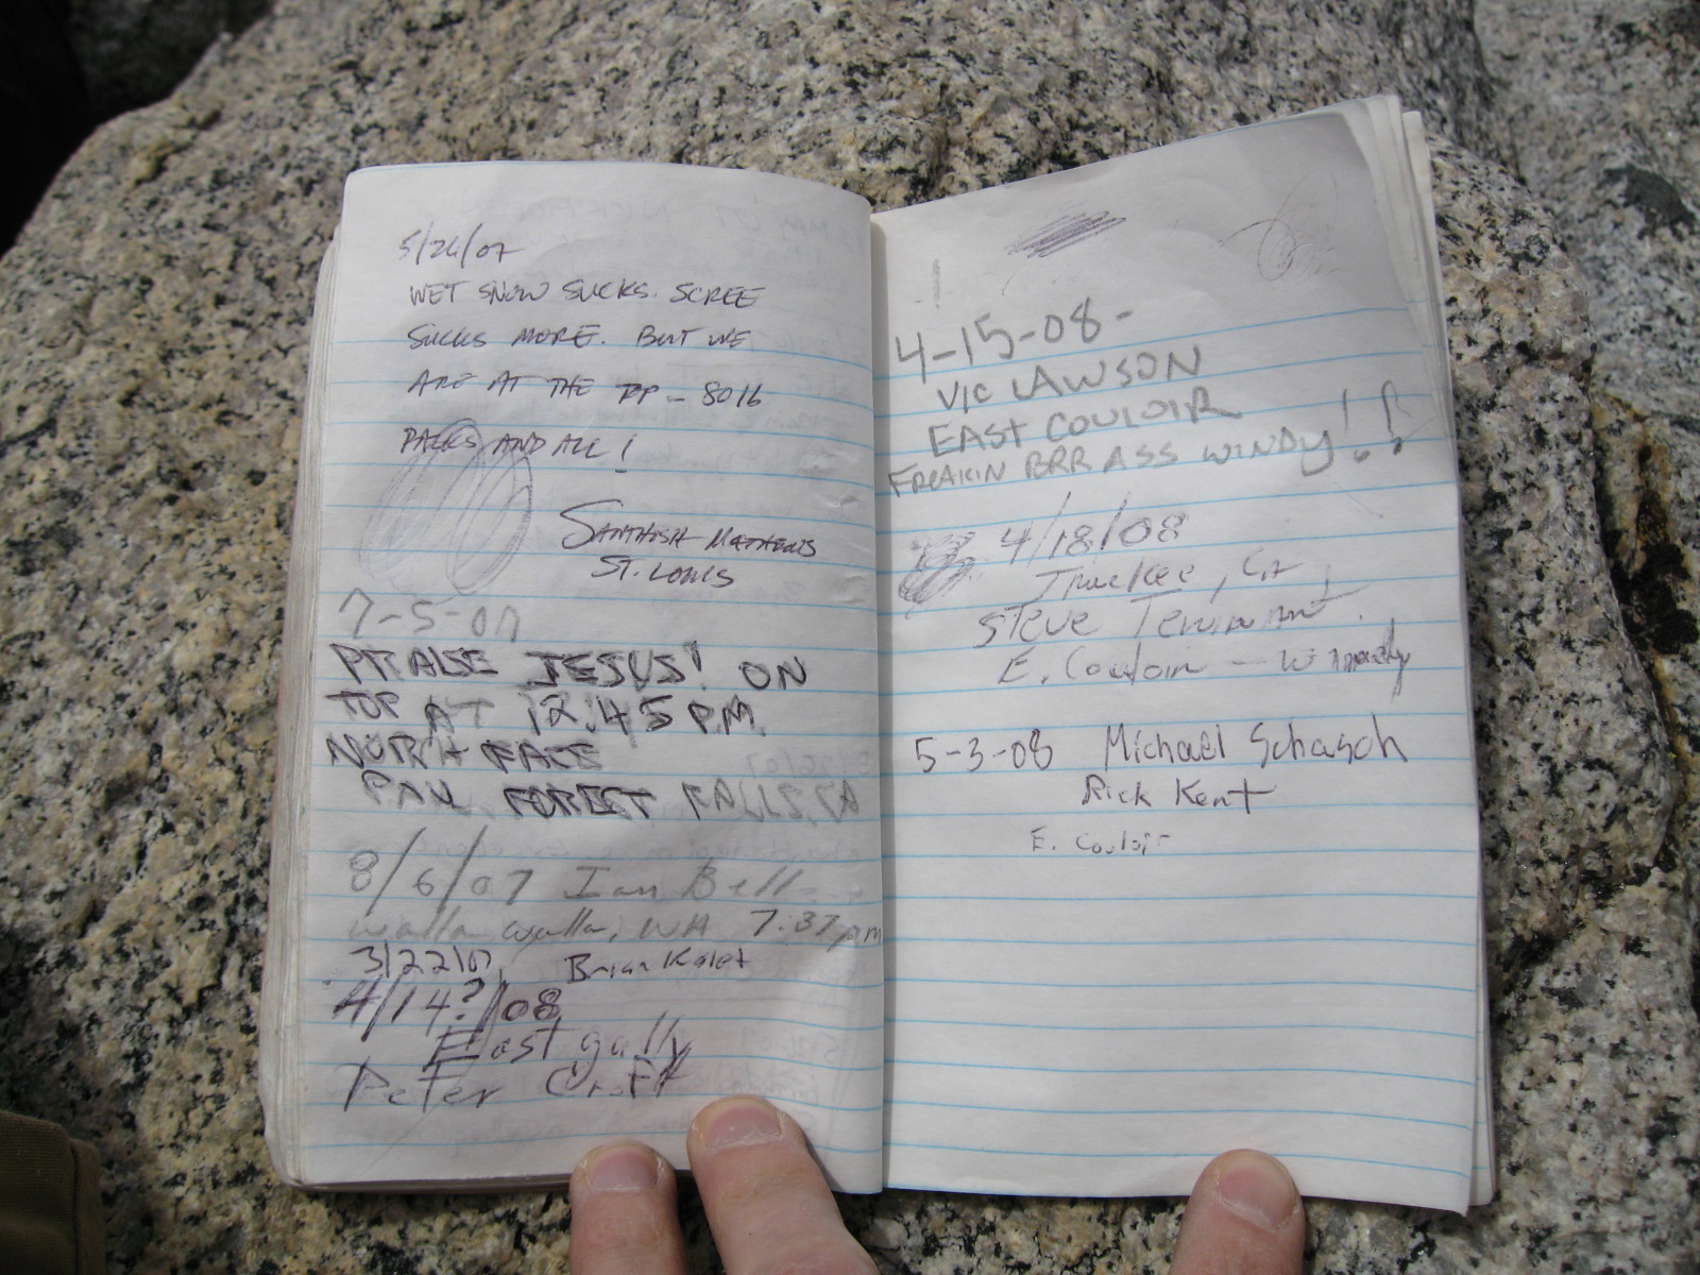 5/26/07
WET SNOW SUCKS. SCREE
SUCKS MORE. BUT WE
ARE AT THE TOP - 8016
PACKS AND ALL!
SANTHOSH MATHEWS
ST. LOUIS
7-5-07
PRAISE JESUS! ON
TOP AT 12:45 P.M.
NORTH FACE
PAUL FOREST FALLS, CA
8/6/07 Ian Bell
Walla Walla, WA 7:37pm
3/22/07 Brian Kalet
4/14?/08
East gully
Peter Croft
4-15-08-
VIC LAWSON
EAST COULOIR
FREAKIN BRR ASS WINDY!!
4/18/08
Truckee, CA
Steve
E. Couloir - Windy
5-3-08 Michael Schasch
Rick Kent
E. Couloir